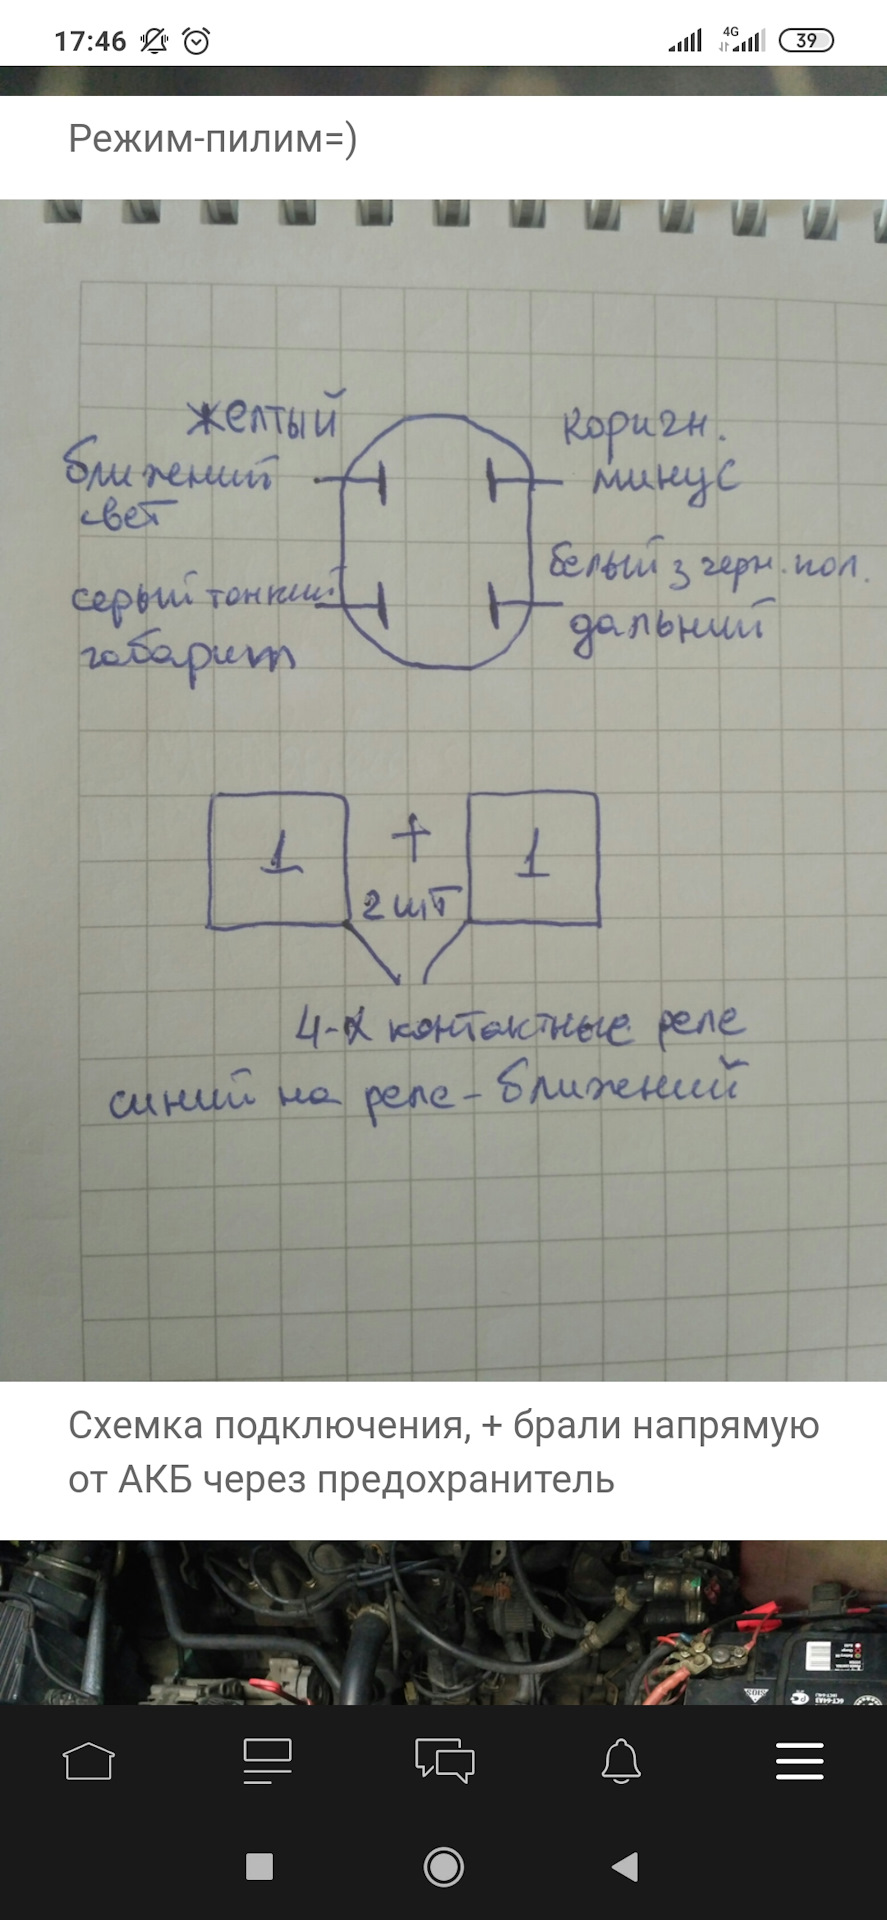 17:46
4G
39
Режим-пилим=)
желтый
ближений
свет
коричн.
минус
серый тонкий
габарит
белый з черн. пол.
дальний
1 + 1
2 шт
4-х контактные реле
синий на реле - ближений
Схемка подключения, + брали напрямую
от АКБ через предохранитель